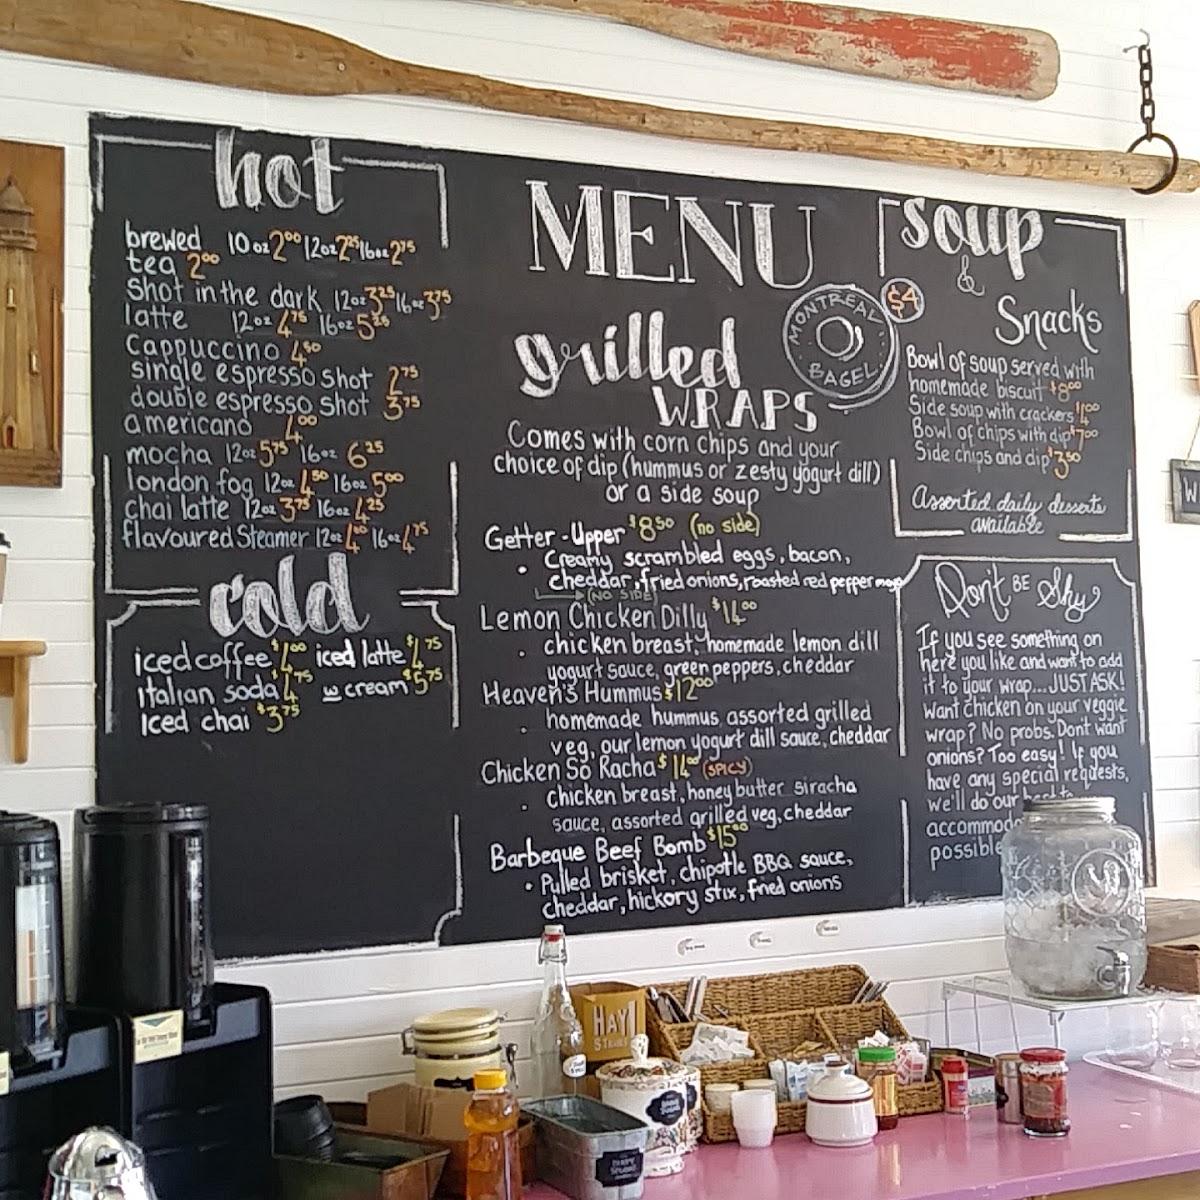 hot
brewed 10oz 2⁰⁰ 12oz 2²⁵ 16oz 2⁷⁵
tea 2⁰⁰
shot in the dark 12oz 3²⁵ 16oz 3⁷⁵
latte 12oz 4⁷⁵ 16oz 5
cappuccino 4⁵⁰
single espresso shot 2⁷⁵
double espresso shot 3⁷⁵
americano 4⁰⁰
mocha 12oz 5⁷⁵ 16oz 6²⁵
london fog 12oz 4⁵⁰ 16oz 5⁰⁰
chai latte 12oz 3⁷⁵ 16oz 4²⁵
flavoured Steamer 12oz 16oz 4⁷⁵
cold
iced coffee $4⁰⁰ iced latte $4⁷⁵
Italian soda 4⁷⁵ w cream $5⁷⁵
Iced chai $3⁷⁵
MENU
MONTREAL
BAGEL
$4
grilled
WRAPS
Comes with corn chips and your
choice of dip (hummus or zesty yogurt dill)
or a side soup
Getter-Upper $8⁵⁰ (no side)
• Creamy scrambled eggs, bacon,
cheddar, fried onions, roasted red pepper mayo
(NO SIDE)
Lemon Chicken Dilly $14⁰⁰
• chicken breast, homemade lemon dill
yogurt sauce, green peppers, cheddar
Heaven's Hummus $12⁰⁰
• homemade hummus assorted grilled
veg, our lemon yogurt dill sauce, cheddar
Chicken So Racha $14⁰⁰ (SPICY)
• chicken breast, honey butter siracha
sauce, assorted grilled veg, cheddar
Barbeque Beef Bomb $15⁰⁰
• Pulled brisket, chipotle BBQ sauce,
cheddar, hickory stix, fried onions
soup
&
Snacks
Bowl of soup served with
homemade biscuit $8⁰⁰
Side soup with crackers $4⁰⁰
Bowl of chips with dip $7⁰⁰
Side chips and dip $3⁵⁰
Assorted daily desserts
available
Don't BE Shy
If you see something on
here you like and want to add
it to your wrap... JUST ASK!
Want chicken on your veggie
wrap? No probs. Dont want
onions? Too easy! If you
have any special requests,
we'll do our
accommod
possible
HAY